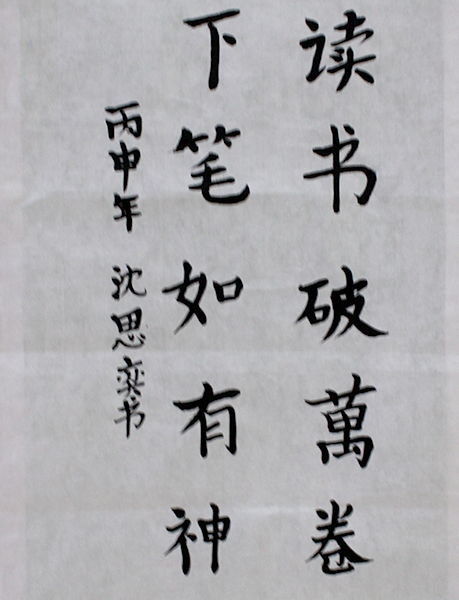 读书破萬卷
下笔如有神
丙申年 沈思奕书